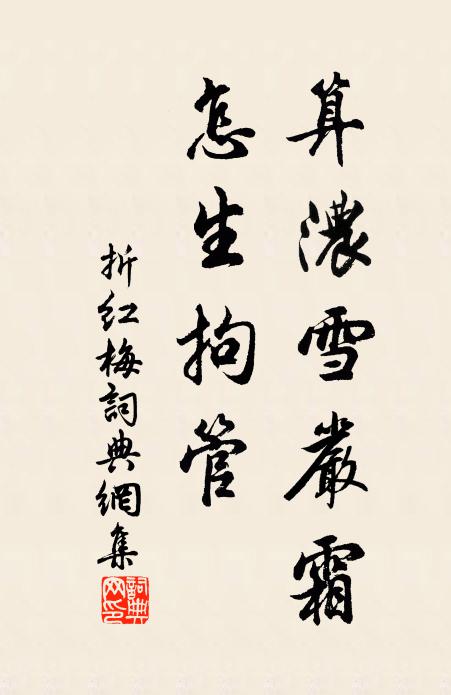 算濃雪嚴霜
怎生拘管
折红梅詞典網集
詞典網印